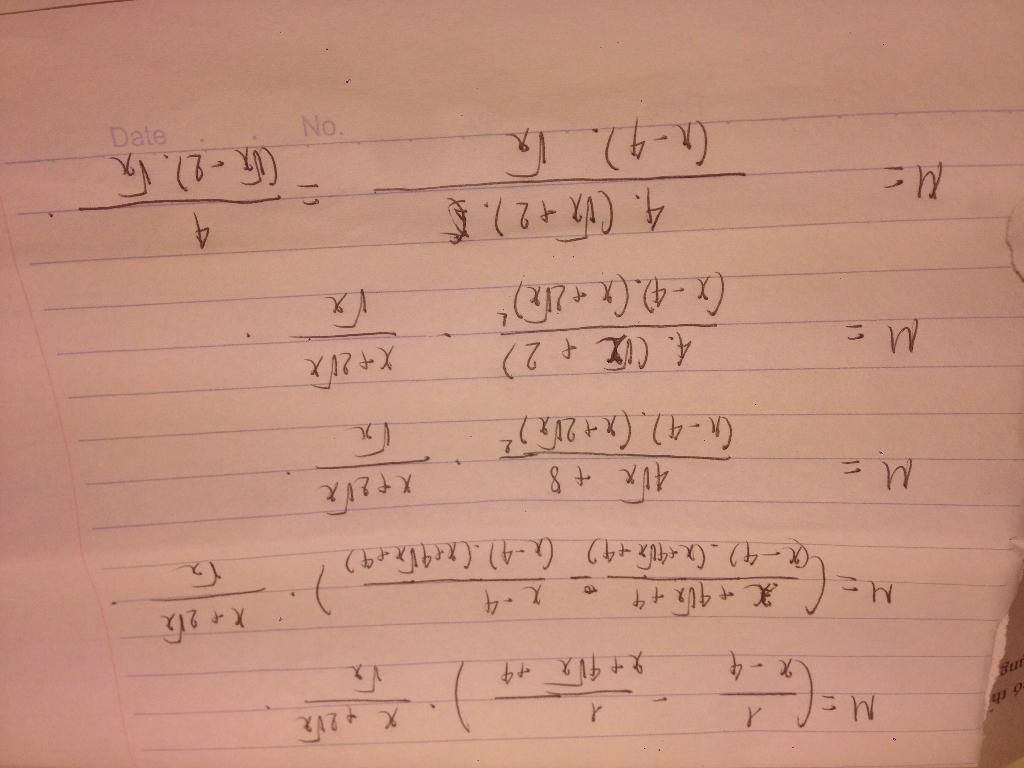 M = (1/(x - 4) - 1/(x + 4√x + 4)) . (x + 2√x)/√x .
M = ((x + 4√x + 4)/((x - 4) . (x + 4√x + 4)) - (x - 4)/((x - 4) . (x + 4√x + 4))) . (x + 2√x)/√x .
M = (4√x + 8)/((x - 4) . (x + 2√x)²) . (x + 2√x)/√x .
M = 4 . (√x + 2)/((x - 4) . (x + 2√x)²) . (x + 2√x)/√x .
M = 4 . (√x + 2) ./((x - 4) . √x) = 4/((√x - 2) . √x) .
Date . . No.